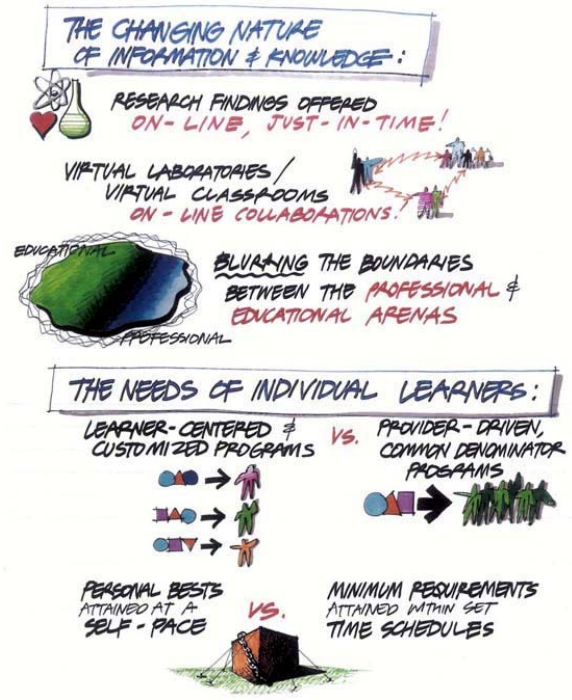 THE CHANGING NATURE
OF INFORMATION & KNOWLEDGE:
RESEARCH FINDINGS OFFERED
ON-LINE, JUST-IN-TIME!
VIRTUAL LABORATORIES /
VIRTUAL CLASSROOMS
ON-LINE COLLABORATIONS!
EDUCATIONAL
PROFESSIONAL
BLURRING THE BOUNDARIES
BETWEEN THE PROFESSIONAL &
EDUCATIONAL ARENAS
THE NEEDS OF INDIVIDUAL LEARNERS:
LEARNER-CENTERED &
CUSTOMIZED PROGRAMS
VS.
PROVIDER-DRIVEN,
COMMON DENOMINATOR
PROGRAMS
PERSONAL BESTS
ATTAINED AT A
SELF-PACE
VS.
MINIMUM REQUIREMENTS
ATTAINED WITHIN SET
TIME SCHEDULES